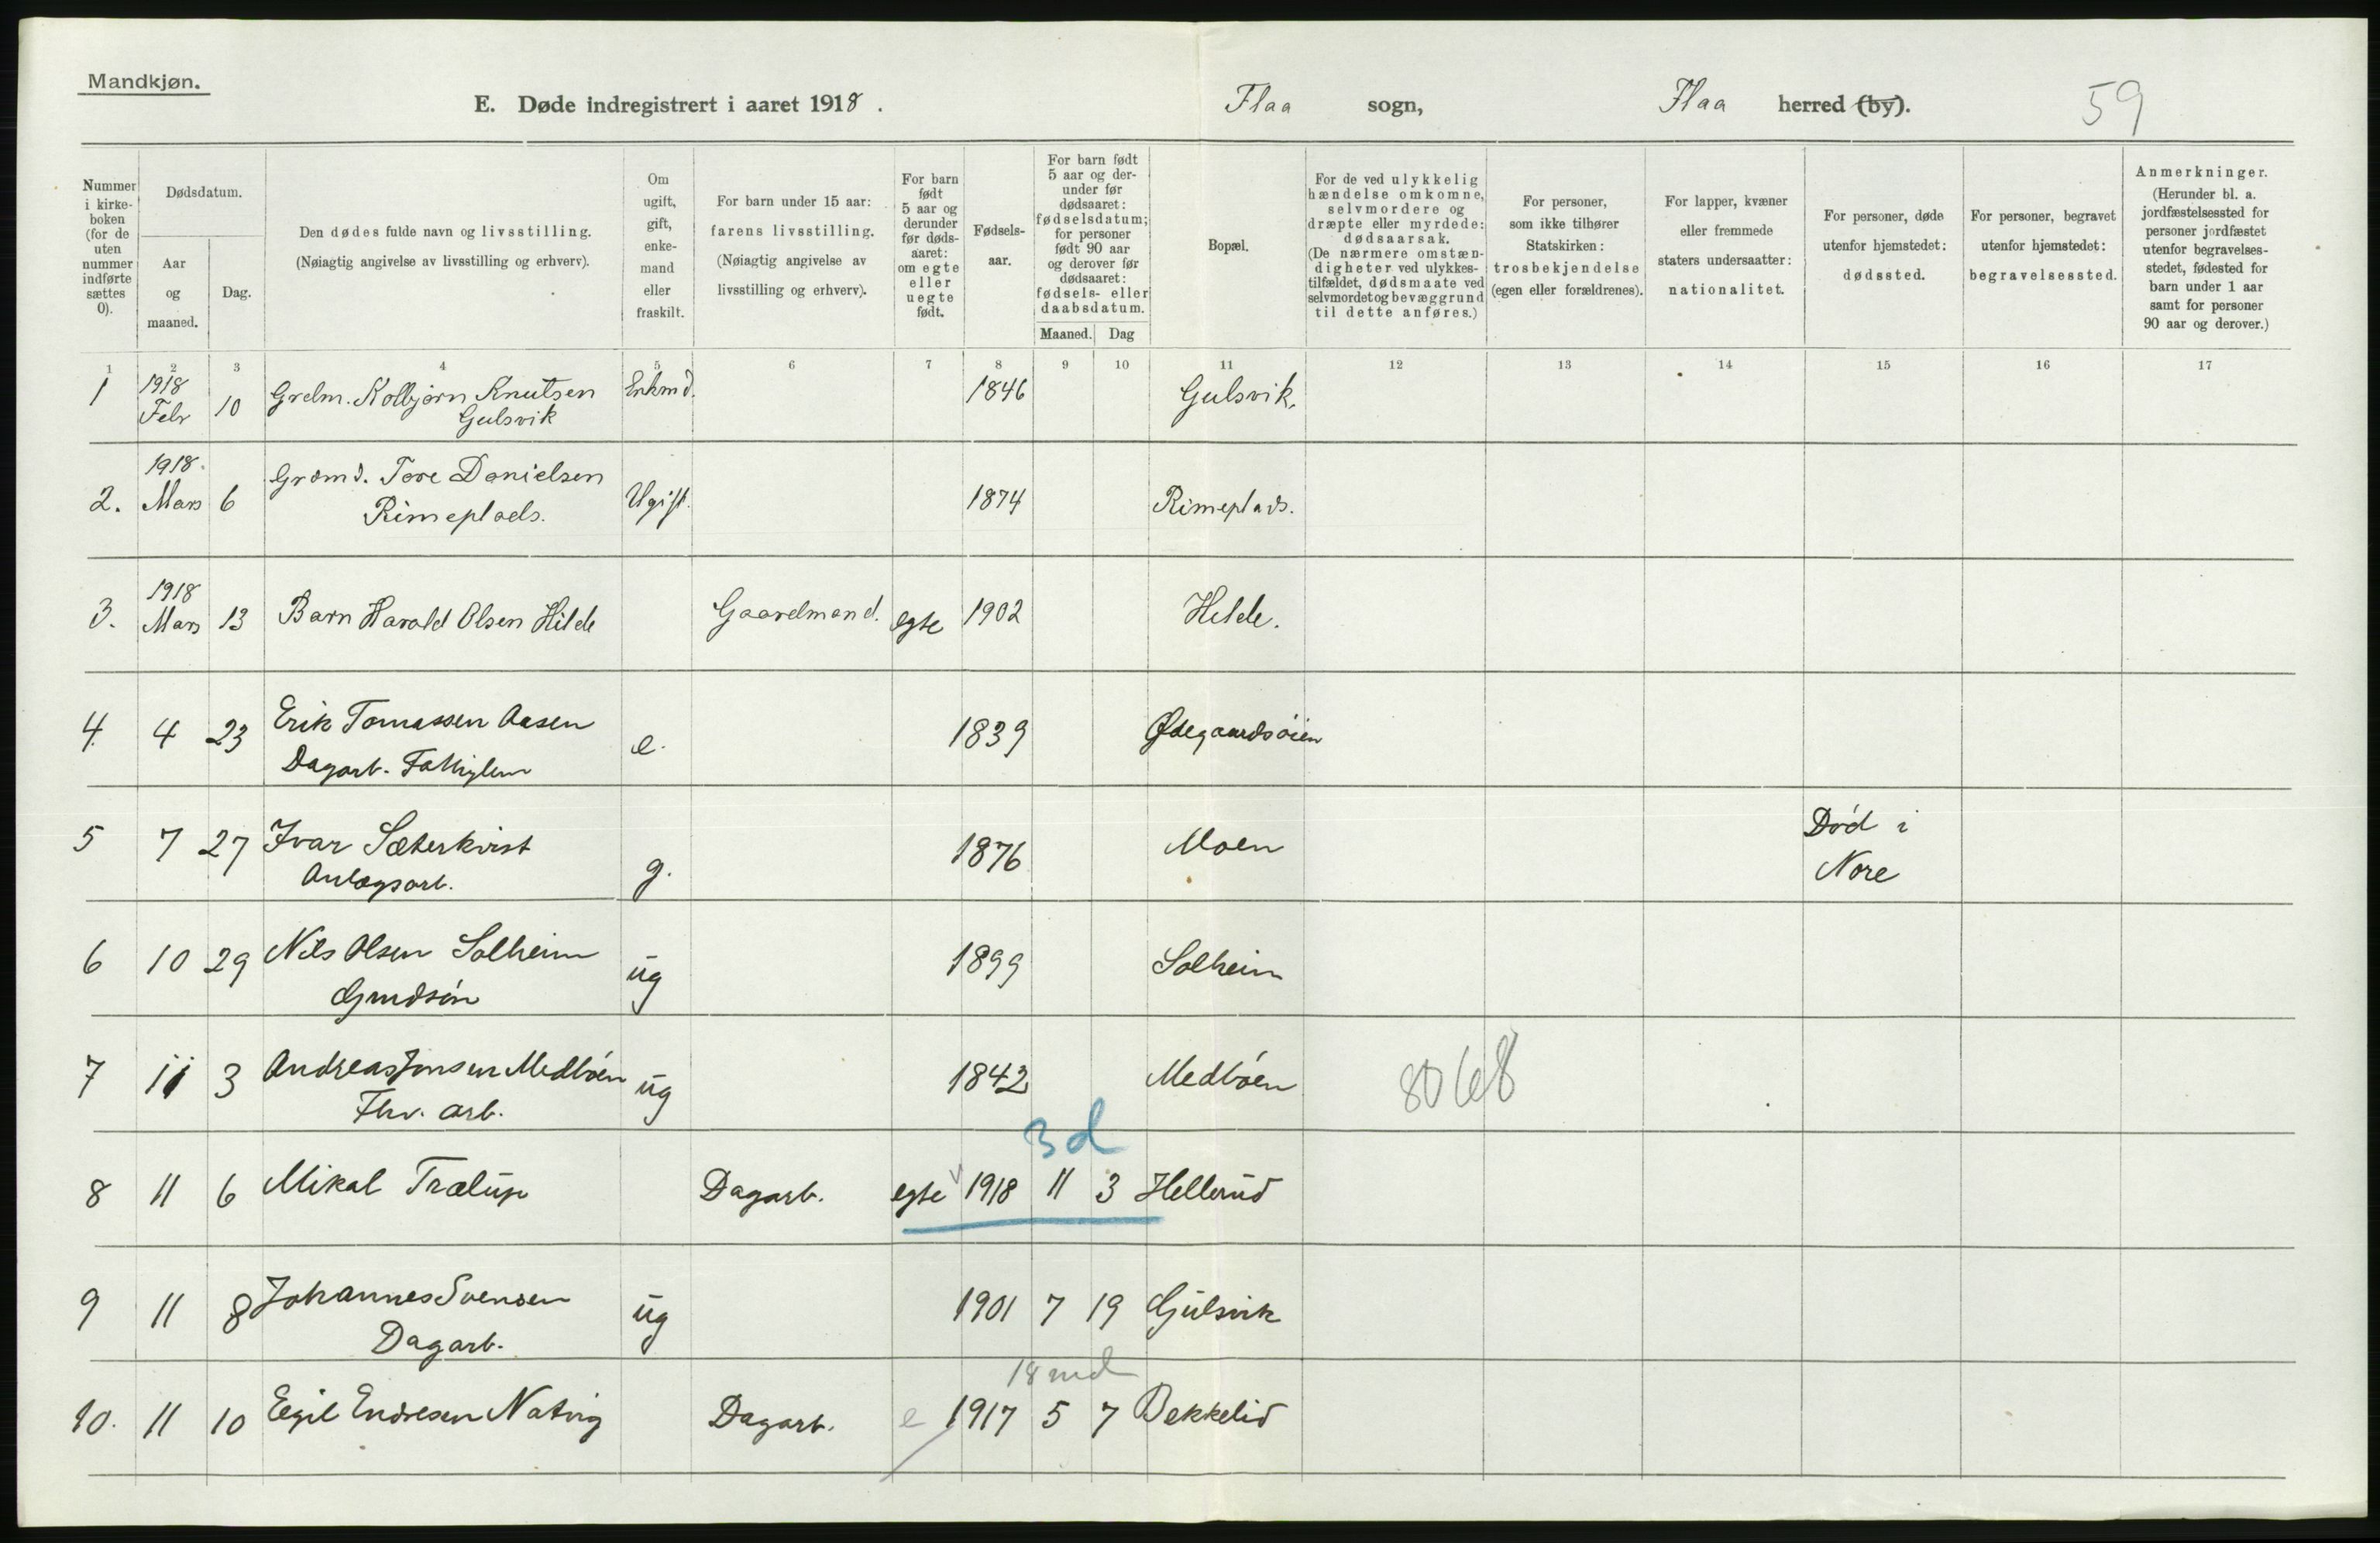 Mandkjøn.
E. Døde indregistrert i aaret 1918. Flaa sogn, Flaa herred (by). 59
Nummer i kirkeboken (for de uten nummer indførte sættes 0).
Dødsdatum.
Aar og maaned.
Dag.
Den dødes fulde navn og livsstilling.
(Nøiagtig angivelse av livsstilling og erhverv).
Om ugift, gift, enkemand eller fraskilt.
For barn under 15 aar: farens livsstilling. (Nøiagtig angivelse av livsstilling og erhverv).
For barn født 5 aar og derunder før dødsaaret: om egte eller uegte født.
Fødselsaar.
For barn født 5 aar og derunder før dødsaaret: fødselsdatum; for personer født 90 aar og derover før dødsaaret: fødsels- eller daabsdatum.
Maaned. Dag
Bopæl.
For de ved ulykkelig hændelse omkomne, selvmordere og dræpte eller myrdede: dødsaarsak. (De nærmere omstændigheter ved ulykkestilfældet, dødsmaate ved selvmordet og bevæggrund til dette anføres.)
For personer, som ikke tilhører Statskirken: trosbekjendelse (egen eller forældrenes).
For lapper, kvæner eller fremmede staters undersaatter: nationalitet.
For personer, døde utenfor hjemstedet: dødssted.
For personer, begravet utenfor hjemstedet: begravelsessted.
Anmerkninger. (Herunder bl. a. jordfæstelsessted for personer jordfæstet utenfor begravelsesstedet, fødested for barn under 1 aar samt for personer 90 aar og derover.)
1 2 3 4 5 6 7 8 9 10 11 12 13 14 15 16 17
1 1918 Febr 10 Grdm. Kolbjørn Knutsen Enkmd. 1846 Gulsvik.
Gulsvik
2. 1918. Mars 6 Grdmd. Tore Danielsen Ugift. 1874 Rimeplads.
Rimeplads.
3. 1918 Mars 13 Barn Harald Olsen Hilde Gaardmand. egte 1902 Hilde.
4. 4 23 Erik Tomassen Aasen e. 1839 Ødegaardsøien
Dagarb.
5 7 27 Ivar Sæterkvist g. 1876 Moen Død i
Anlægsarb. Nore
6 10 29 Nils Olsen Solheim ug 1899 Solheim
Grmdsøn
7 11 3 Andreas Jonsen Medbøen ug 1842 Medbøen 8068
Fhv. arb.
3 d
8 11 6 Mikal Trælup Dagarb. egte 1918 11 3 Hellerud
9 11 8 Johannes Svensen ug 1901 7 19 Gulsvik
Dagarb.
18 md
10. 11 10 Egil Endresen Natvig Dagarb. e 1917 5 7 Bekkelid